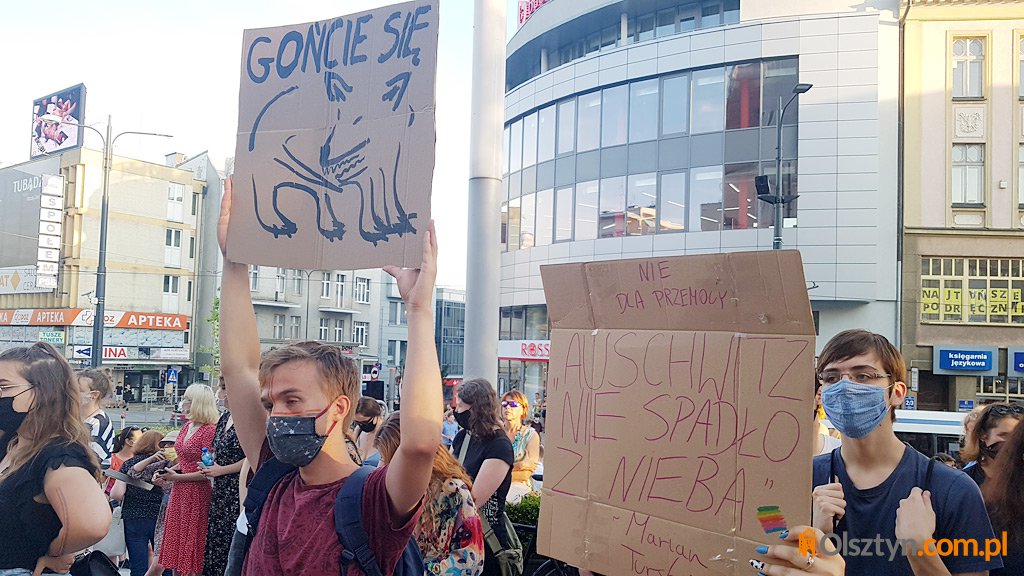 GOŃCIE SIĘ
NIE
DLA PRZEMOCY
"AUSCHWITZ
NIE SPADŁO
Z NIEBA"
~Marian
Turski
TUBĄDZIN
SPOŁEM
APTEKA
APTEKA
ROSS
NAJTAŃSZE
PODRĘCZNI
księgarnia
językowa
Olsztyn.com.pl